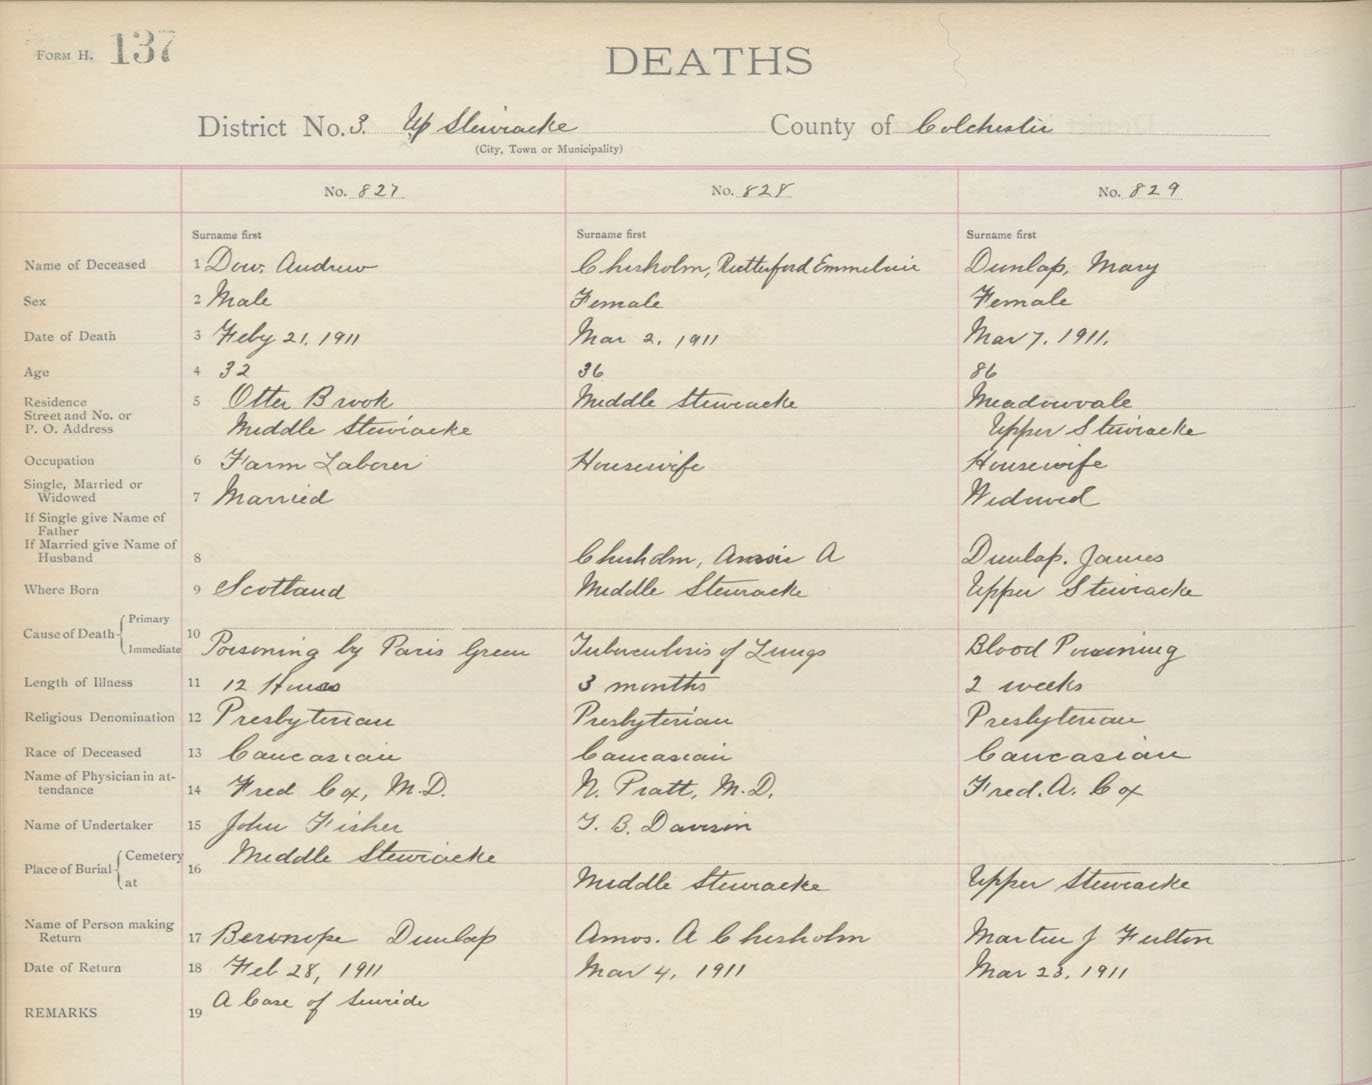 FORM H. 137
DEATHS
District No. 3. Up Stewiacke County of Colchester
(City, Town or Municipality)
No. 827 No. 828 No. 829
Surname first Surname first Surname first
Name of Deceased 1 Dow, Andrew Chisholm, Rutherford Emmeline Dunlap, Mary
Sex 2 Male Female Female
Date of Death 3 Feby 21, 1911 Mar 2, 1911 Mar 7, 1911.
Age 4 32 36 86
Residence 5 Otter Brook Middle Stewiacke Meadowvale
Street and No. or
P. O. Address Middle Stewiacke Upper Stewiacke
Occupation 6 Farm Laborer Housewife Housewife
Single, Married or
Widowed 7 Married Widowed
If Single give Name of
Father
If Married give Name of
Husband 8 Chisholm, A Dunlap, James
Where Born 9 Scotland Middle Stewiacke Upper Stewiacke
Cause of Death Primary
10
Immediate Poisoning by Paris Green Tuberculosis of Lungs Blood Poisoning
Length of Illness 11 12 Hours 3 months 2 weeks
Religious Denomination 12 Presbyterian Presbyterian Presbyterian
Race of Deceased 13 Caucasian Caucasian Caucasian
Name of Physician in at-
tendance 14 Fred Cox, M.D. N. Pratt, M.D. Fred. A. Cox
Name of Undertaker 15 John Fisher T. B. Davison
Place of Burial Cemetery Middle Stewiacke
16
at Middle Stewiacke Upper Stewiacke
Name of Person making
Return 17 Dunlap Amos. A Chisholm Martin J Fulton
Date of Return 18 Feb 28, 1911 Mar 4, 1911 Mar 23, 1911
REMARKS 19 A Case of Suicide